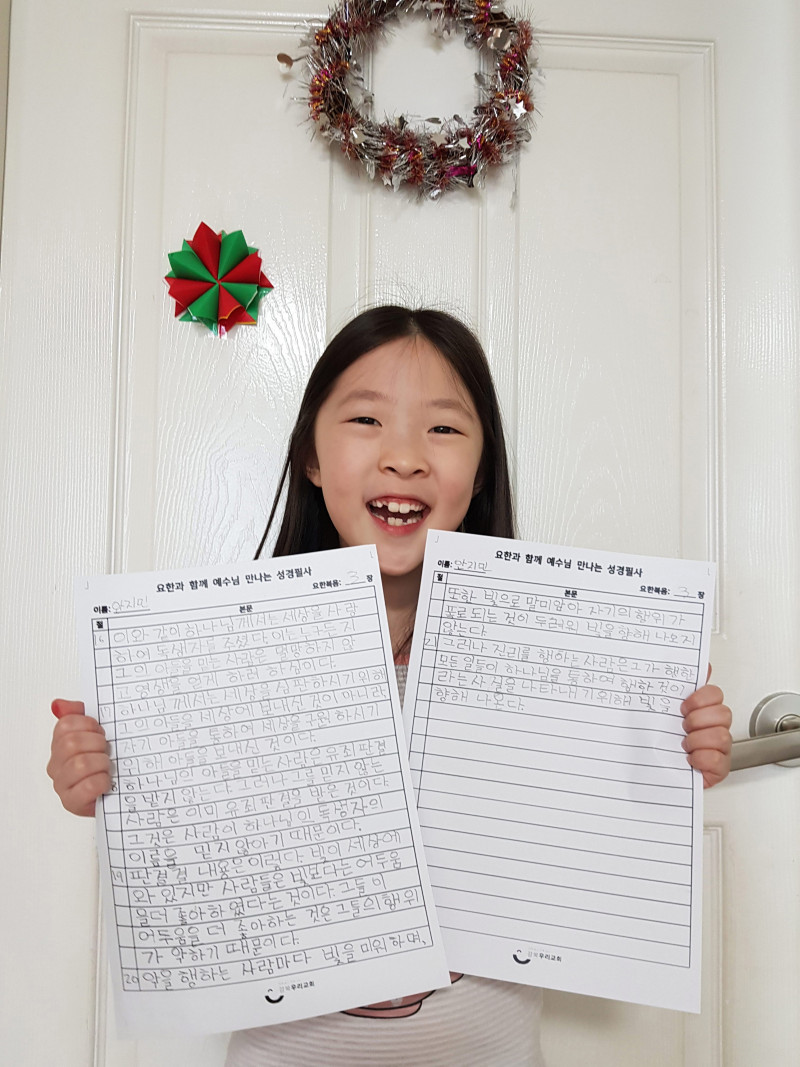 요한과 함께 예수님 만나는 성경필사
이름: 안지민 요한복음: 3 장
절 본문
16 이와 같이 하나님께서는 세상을 사랑
하여 독생자를 주셨다. 이는 누구든지
그의 아들을 믿는 사람은 멸망하지 않
고 영생을 얻게 하려 하심이다.
17 하나님께서는 세상을 심판하시기 위해
그의 아들을 세상에 보내신 것이 아니라,
자기 아들을 통하여 세상을 구원하시기
위해 아들을 보내신 것이다.
18 하나님의 아들을 믿는 사람은 유죄 판결
을 받지 않는다. 그러나 그를 믿지 않는
사람은 이미 유죄 판결을 받은 것이다.
그것은 사람이 하나님의 독생자의
이름을 믿지 않아기 때문이다.
19 판결결 내용은 이렇다. 빛이 세상에
와 있지만 사람들은 빛보다는 어두움
을더 좋아하였다는 것이다. 그들이
어두움을 더 좋아하는 것은 그들의 행위
가 악하기 때문이다.
20 악을 행하는 사람마다 빛을 미워하며,
강북우리교회
요한과 함께 예수님 만나는 성경필사
이름: 안지민 요한복음: 3 장
절 본문
또한 빛으로 말미암아 자기의 행위가
폭로 되는 것이 두려워 빛을 향해 나오지
않는다.
21 그러나 진리를 행하는 사람은 그가 행한
모든 일들이 하나님을 통하여 행한 것이
라는 사실을 나타내기 위해 빛을
향해 나온다.
강북우리교회